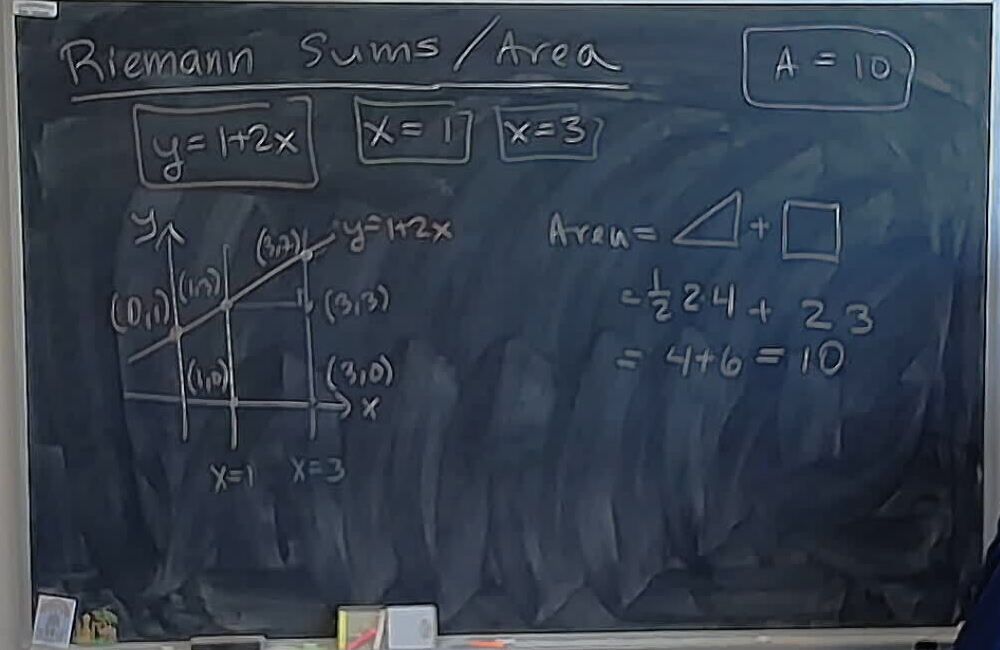 Riemann Sums/Area
A = 10
y=1+2x x=1 x=3
y
(3,7) y=1+2x
(1,3)
(0,1) (3,3)
(1,0) (3,0)
x
x=1 x=3
Area= +
= 1/2 2·4 + 2 3
= 4+6 = 10